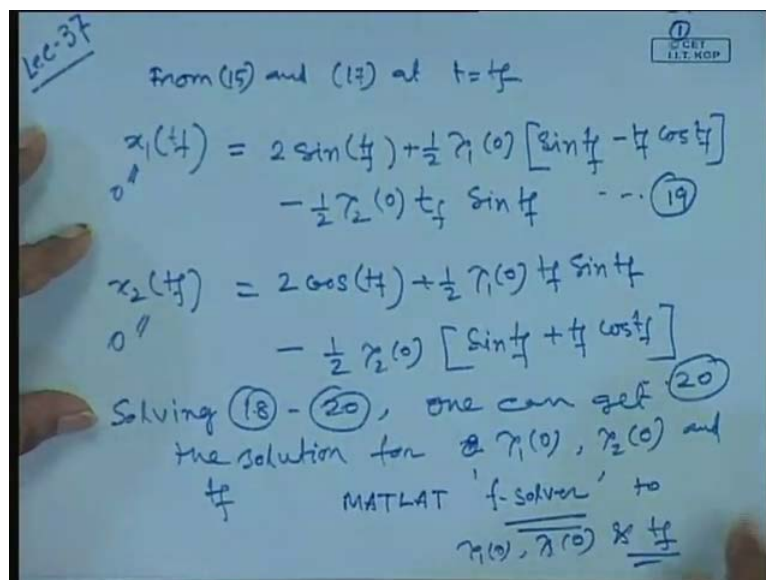 Lec-37
①
© CET
I.I.T. KGP
From (15) and (17) at t = tf
x₁(tf) = 2 sin(tf) + ½ λ₁(0) [sin tf - tf cos tf]
0"
- ½ λ₂(0) tf Sin tf --- ⑲
x₂(tf) = 2 cos(tf) + ½ λ₁(0) tf Sin tf
0"
- ½ λ₂(0) [Sin tf + tf cos tf]
⑳
Solving ⑱ - ⑳, one can get
the solution for λ₁(0), λ₂(0) and
tf MATLAT 'f-solver' to
λ₁(0), λ(0) & tf